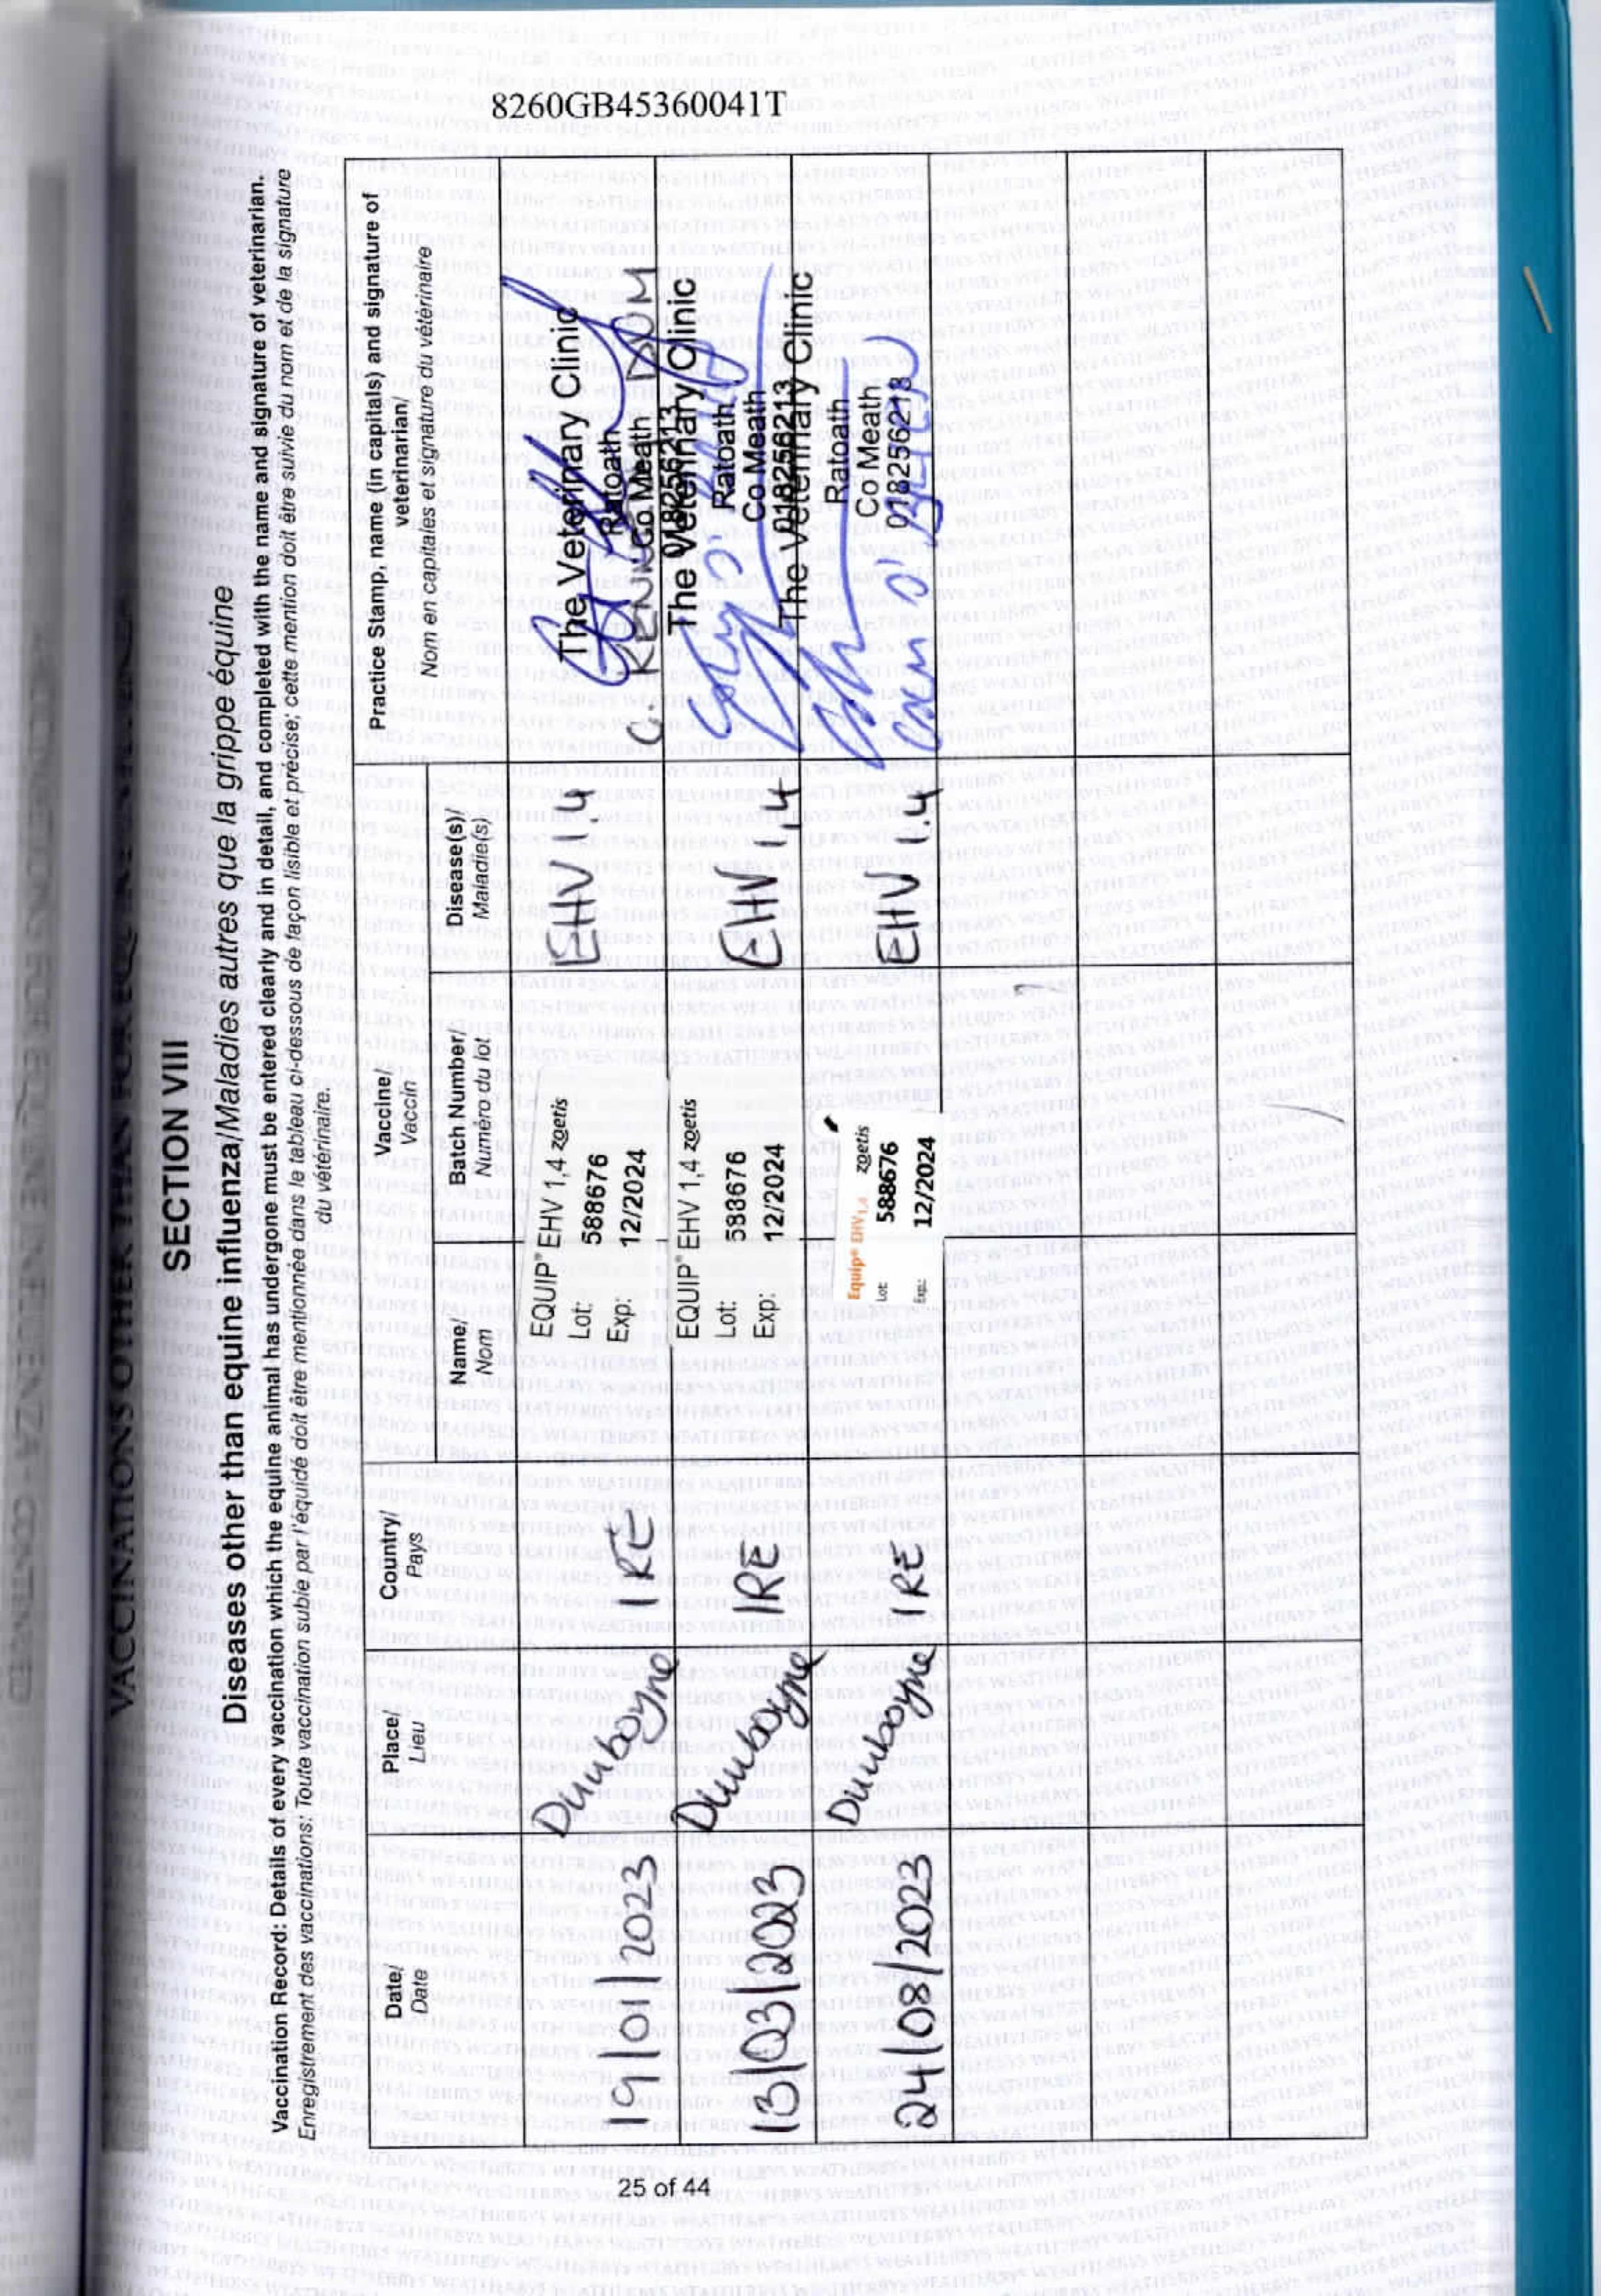 8260GB45360041T
VACCINATIONS OTHER THAN FOR
SECTION VIII
Diseases other than equine influenza/Maladies autres que la grippe équine
Vaccination Record: Details of every vaccination which the equine animal has undergone must be entered clearly and in detail, and completed with the name and signature of veterinarian.
Enregistrement des vaccinations: Toute vaccination subie par l'équidé doit être mentionnée dans le tableau ci-dessous de façon lisible et précise; cette mention doit être suivie du nom et de la signature
du vétérinaire.
Date/
Date
Place/
Lieu
Country/
Pays
Vaccine/
Vaccin
Name/
Nom
Batch Number/
Numéro du lot
Disease(s)/
Maladie(s)
Practice Stamp, name (in capitals) and signature of
veterinarian/
Nom en capitales et signature du vétérinaire
19/01/2023
Dunboyne
IRE
EQUIP® EHV 1,4 zoetis
Lot: 588676
Exp: 12/2024
EHV 1.4
The Veterinary Clinic
Ratoath
Co Meath
018256213
13/03/2023
Dunboyne
IRE
EQUIP® EHV 1,4 zoetis
Lot: 588676
Exp: 12/2024
EHV 1.4
The Veterinary Clinic
Ratoath
Co Meath
018256213
24/08/2023
Dunboyne
IRE
Equip® EHV1,4 zoetis
Lot: 588676
Exp.: 12/2024
EHV 1.4
The Veterinary Clinic
Ratoath
Co Meath
018256213
25 of 44